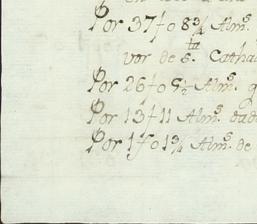 Por 37 to 8¾ Alm.s
vor de S.ta Catha
Por 26 to 5½ Alm.s q
Por 13 t 11 Alm.s dad
Por 1 to 1¾ Alm.s de